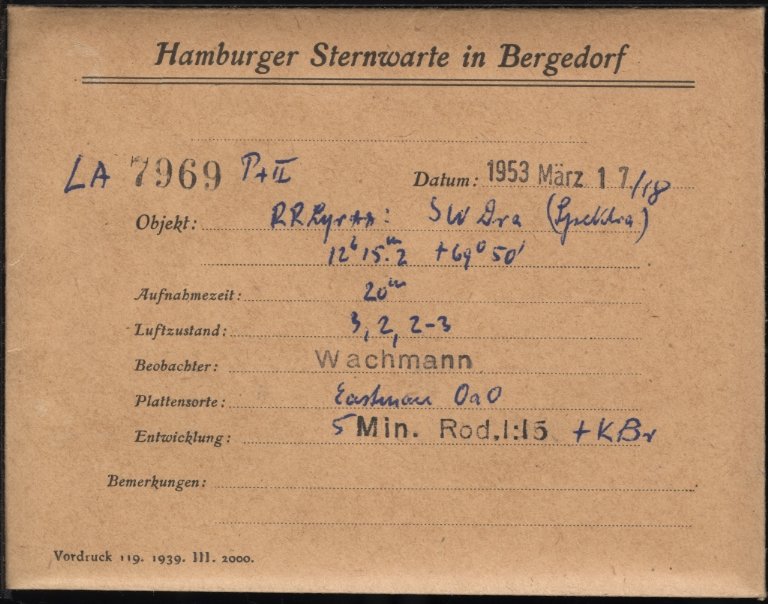 Hamburger Sternwarte in Bergedorf
LA 7969 P+II Datum: 1953 März 17/18
Objekt: RR Lyr**: SW Dra (Spektra)
12h 15.m2 +69° 50'
Aufnahmezeit: 20m
Luftzustand: 3, 2, 2-3
Beobachter: Wachmann
Plattensorte: Eastman OaO
Entwicklung: 5 Min. Rod.1:15 + KBr
Bemerkungen:
Vordruck 119. 1939. III. 2000.